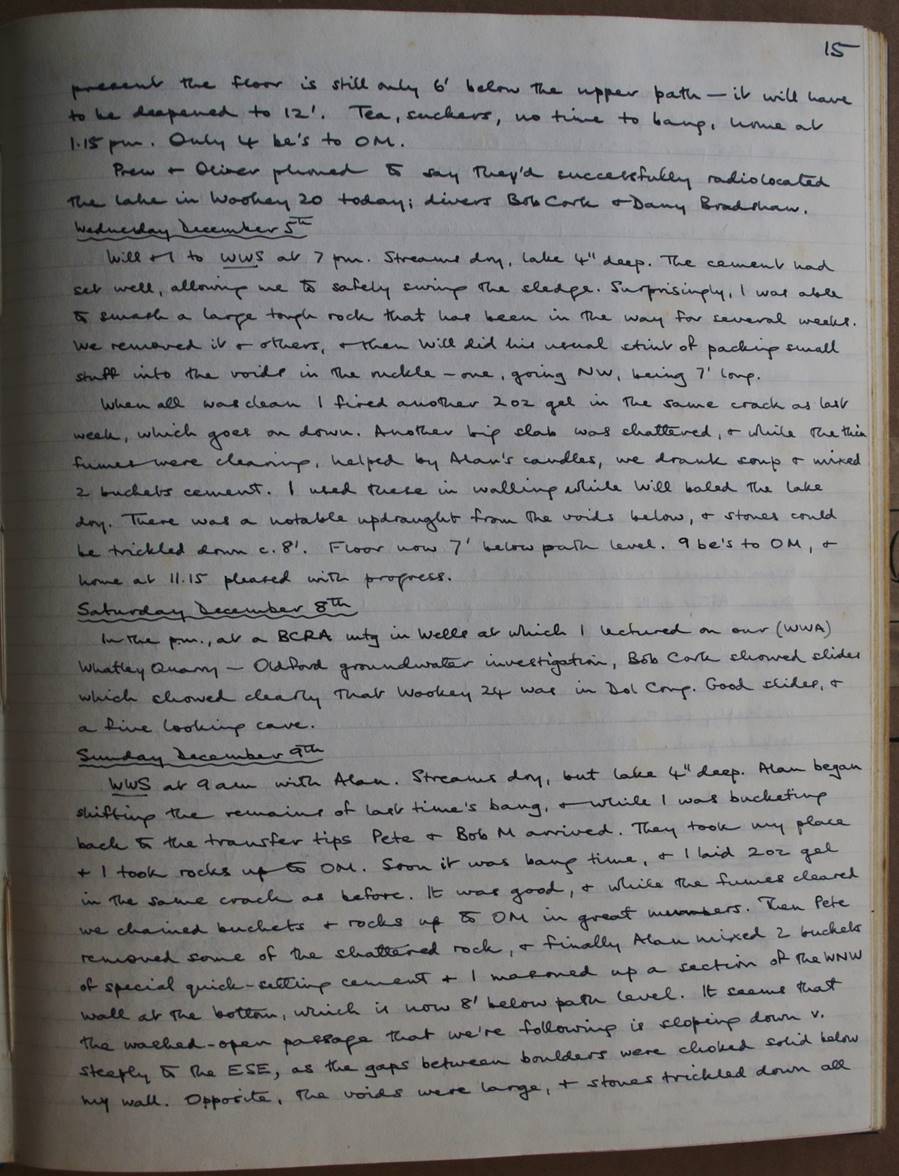 15
present the floor is still only 6' below the upper path — it will have
to be deepened to 12'. Tea, suckers, no time to bang, home at
1.15 pm. Only 4 be's to OM.
Prew & Oliver phoned to say they'd successfully radiolocated
the lake in Wookey 20 today; divers Bob Cork & Dany Bradshaw.
Wednesday December 5th
Will & I to WWS at 7 pm. Streams dry, lake 4" deep. The cement had
set well, allowing me to safely swing the sledge. Surprisingly, I was able
to smash a large tough rock that has been in the way for several weeks.
We removed it & others, & then Will did his usual stint of packing small
stuff into the voids in the ruckle — one, going NW, being 7' long.
When all was clean I fired another 2 oz gel in the same crack as last
week, which goes on down. Another big slab was shattered, & while the thin
fumes were clearing, helped by Alan's candles, we drank soup & mixed
2 buckets cement. I used these in walling while Will baled the lake
dry. There was a notable updraught from the voids below, & stones could
be trickled down c. 8'. Floor now 7' below path level. 9 be's to OM, &
home at 11.15 pleased with progress.
Saturday December 8th
In the p.m., at a BCRA mtg in Wells at which I lectured on our (WWA)
Whatley Quarry — Oldford groundwater investigation, Bob Cork showed slides
which showed clearly that Wookey 24 was in Dol Cong. Good slides, &
a fine looking cave.
Sunday December 9th
WWS at 9 am with Alan. Streams dry, but lake 4" deep. Alan began
shifting the remains of last time's bang, & while I was bucketing
back to the transfer tips Pete & Bob M arrived. They took my place
& I took rocks up to OM. Soon it was bang time, & I laid 2 oz gel
in the same crack as before. It was good, & while the fumes cleared
we chained buckets & rocks up to OM in great numbers. Then Pete
removed some of the shattered rock, & finally Alan mixed 2 buckets
of special quick-setting cement & I masoned up a section of the WNW
wall at the bottom, which is now 8' below path level. It seems that
the washed-open passage that we're following is sloping down v.
steeply to the ESE, as the gaps between boulders were choked solid below
my wall. Opposite, the voids were large, & stones trickled down all